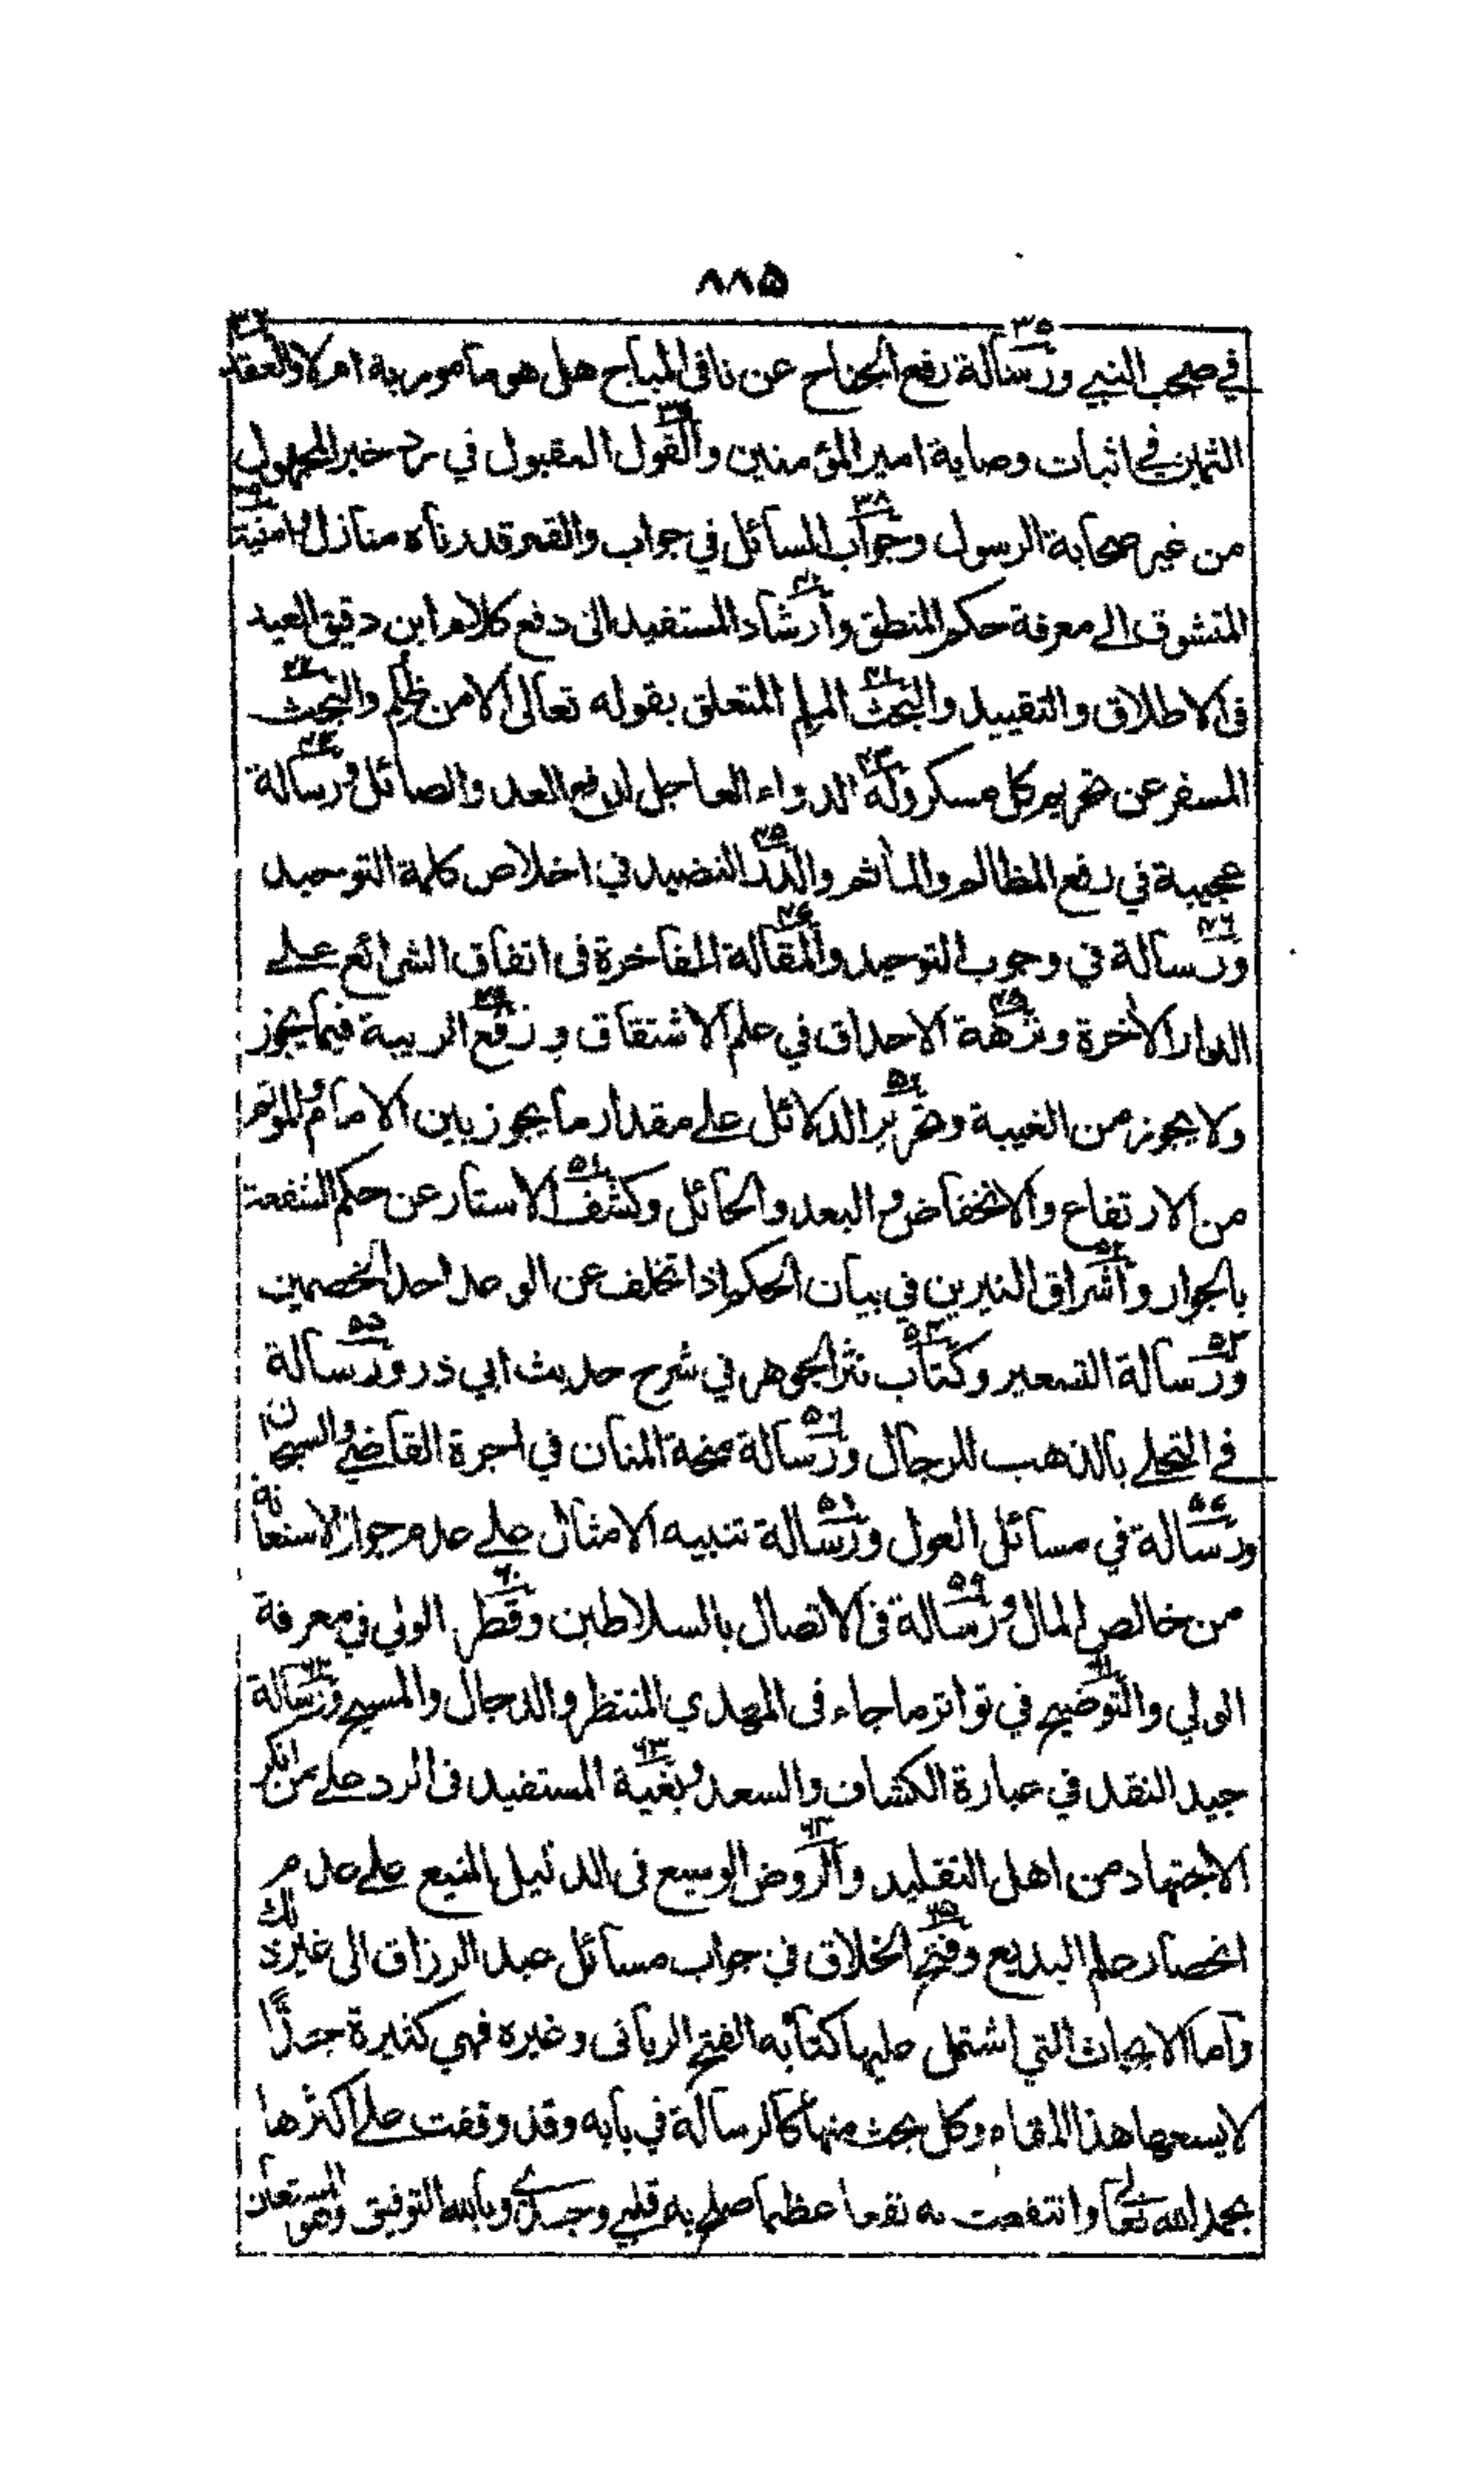 ٨٨٥
في صحب النبي ورسالة رفع الجناح عن نافي المباح هل هو مأمور به ام لا والعقد
الثمين في اثبات وصاية امير المؤمنين والقول المقبول في رد خبر المجهول
من غير صحابة الرسول وجواب السائل في جواب والقمر قدرناه منازل وامنية
المتشوق الى معرفة حكم المنطق وارشاد المستفيد الى دفع كلام ابن دقيق العيد
فى الاطلاق والتقييد والبحث الملم المتعلق بقوله تعالى الا من ظلم والبحث
المسفر عن تحريم كل مسكر وله الدواء العاجل لدفع العدو الصائل ورسالة
عجيبة في رفع المظالم والمآثم والدر النضيد في اخلاص كلمة التوحيد
ورسالة في وجوب التوحيد والمقالة الفاخرة فى اتفاق الشرائع على
الدار الآخرة ونزهة الاحداق في علم الاشتقاق ورفع الريبة فيما يجوز
ولا يجوز من الغيبة وتحرير الدلائل على مقدار ما يجوز بين الامام والمؤتم
من الارتفاع والانخفاض والبعد والحائل وكشف الاستار عن حكم الشفعة
بالجوار واشراق النيرين في بيان الحكم اذا تخلف عن الوعد احد الخصمين
ورسالة التسعير وكتاب نثر الجوهر في شرح حديث ابي ذر ورسالة
في التحلي بالذهب للرجال ورسالة منحة المنان في اجرة القاضي والسجان
ورسالة في مسائل العول ورسالة تنبيه الامثال على عدم جواز الاستعانة
من خالص المال ورسالة فى الاتصال بالسلاطين وقطر الولي في معرفة
الولي والتوضيح في تواتر ما جاء فى المهدي المنتظر والدجال والمسيح ورسالة
جيد النقد في عبارة الكشاف والسعد وبغية المستفيد فى الرد على من انكر
الاجتهاد من اهل التقليد والروض الوسيع فى الدليل المنيع على عدم
انحصار علم البديع وفتح الخلاق في جواب مسائل عبد الرزاق الى غير ذلك
وأما الابحاث التي اشتمل عليها كتابه الفتح الرباني وغيره فهي كثيرة جدًّا
لا يسعها هذا المقام وكل بحث منها كالرسالة في بابه وقد وقفت على اكثرها
بحمد الله تعالى وانتفعت به نفعا عظيما صلح به قلبي وجسدي وبالله التوفيق وهو المستعان